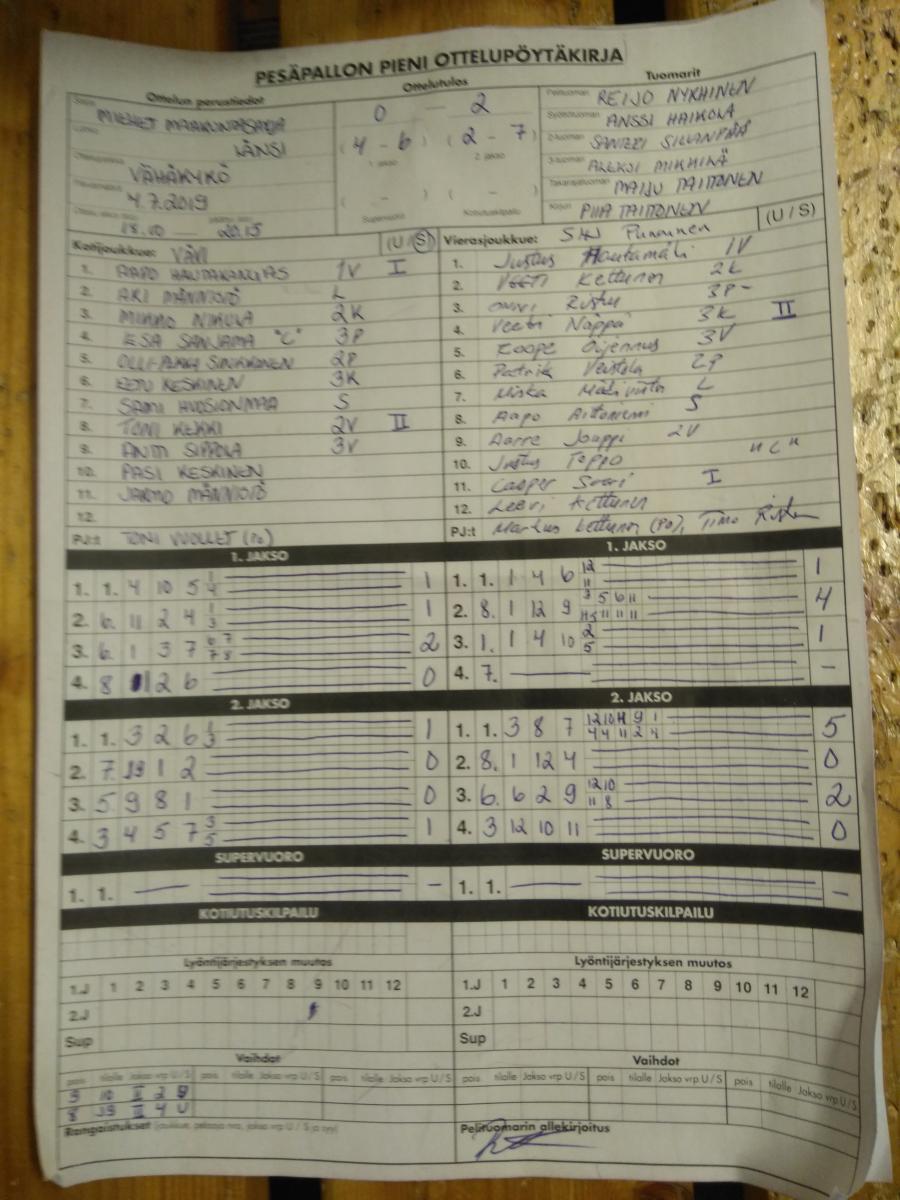 PESÄPALLON PIENI OTTELUPÖYTÄKIRJA
Ottelun perustiedot Ottelutulos Tuomarit
Sarja MIEHET MAAKUNTASARJA
LÄNSI
VÄHÄKYRÖ
4.7.2019
18.10 — 20.15
0 — 2
(4 - 6) (2 - 7)
1. jakso 2. jakso
( - ) ( - )
Supervuoro Kotiutuskilpailu
Pelituomari REIJO NYKHINEN
Syöttötuomari ANSSI HAIKOLA
2-tuomari SANTERI SILLANPÄÄ
3-tuomari ALEKSI MIKKILÄ
Takarajatuomari MAIJU TAITTONEN
Kirjuri PIIA TAITTONEN
Kotijoukkue: VÄVI (U / S)
1. AAPO HAUTAKANGAS 1V I
2. AKI MÄNNISTÖ L
3. MIKKO NIKULA 2K
4. ESA SANJAMA "C" 3P
5. OLLI-PEKKA 2P
6. EETU KESKINEN 3K
7. SAMI HUOSIONMAA S
8. TONI KEKKI 2V II
9. ANTTI SIPPOLA 3V
10. PASI KESKINEN
11. JARMO MÄNNISTÖ
12.
PJ:t TONI VUOLLET (PO)
Vierasjoukkue: SMJ Punainen (U / S)
1. Justus Hautamäki 1V
2. VEETI Kettunen 2K
3. Onni Ristu 3P
4. Veeti Näppä 3K II
5. Roope Oijennus 3V
6. Patrik 2P
7. Miska L
8. Aapo S
9. Aarre Jouppi 2V
10. Justus Toppo "C"
11. Casper Svari I
12. Leevi Kettunen
PJ:t Markus Kettunen (PO), Timo
1. JAKSO
1. 1. 4 10 5 1/4 1
2. 6. 11 2 4 1/3 1
3. 6. 1 3 7 6/7 7/8 2
4. 8 1 2 6 0
1. JAKSO
1. 1. 1 4 6 12/11 1
2. 8. 1 12 9 3 5 6 11 4
3. 1. 1 4 10 2/5 1
4. 7. — –
2. JAKSO
1. 1. 3 2 6 1/3 1
2. 7. 1 2 0
3. 5 9 8 1 0
4. 3 4 5 7 3/5 1
2. JAKSO
1. 1. 3 8 7 12 10 11 9 1 4 4 11 2 4 5
2. 8. 1 12 4 0
3. 6. 6 2 9 12 10 11 8 2
4. 3 12 10 11 0
SUPERVUORO
1. 1. — –
SUPERVUORO
1. 1. — –
KOTIUTUSKILPAILU
KOTIUTUSKILPAILU
Lyöntijärjestyksen muutos
1.J 1 2 3 4 5 6 7 8 9 10 11 12
2.J
Sup
Lyöntijärjestyksen muutos
1.J 1 2 3 4 5 6 7 8 9 10 11 12
2.J
Sup
Vaihdot
pois tilalle Jakso vrp U / S pois tilalle Jakso vrp U / S pois tilalle Jakso vrp U / S
9 10 II 2
8 II 4 U
Vaihdot
pois tilalle Jakso vrp U / S pois tilalle Jakso vrp U / S pois tilalle Jakso vrp U / S
Rangaistukset (joukkue, pelaaja nro, jakso vrp U / S ja syy)
Pelituomarin allekirjoitus